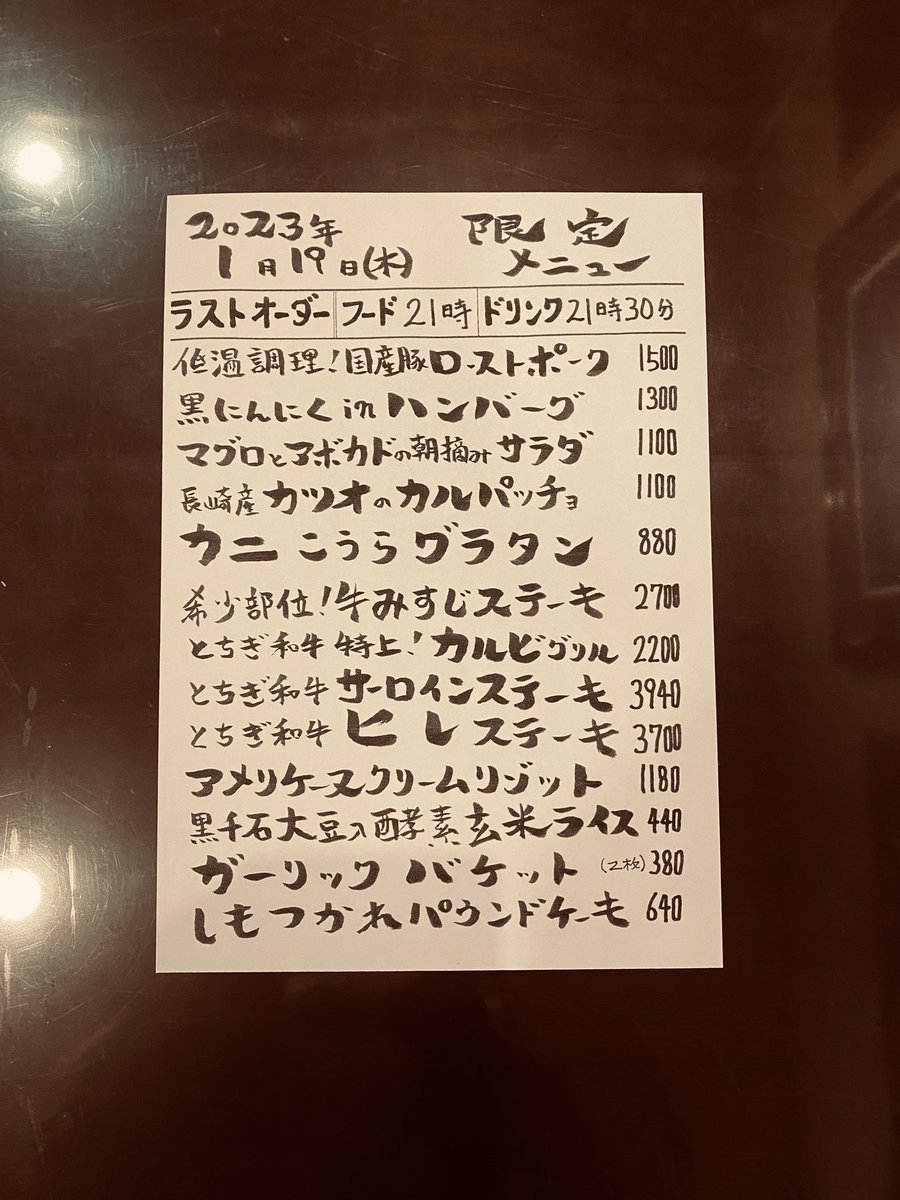 2023年 限定
1月19日(木) メニュー
ラストオーダー フード21時 ドリンク21時30分
低温調理!国産豚ローストポーク 1500
黒にんにくinハンバーグ 1300
マグロとアボカドの朝摘みサラダ 1100
長崎産カツオのカルパッチョ 1100
カニこうらグラタン 880
希少部位!牛みすじステーキ 2700
とちぎ和牛特上!カルビグリル 2200
とちぎ和牛サーロインステーキ 3940
とちぎ和牛ヒレステーキ 3700
アメリケーヌクリームリゾット 1180
黒千石大豆入酵素玄米ライス 440
ガーリックバケット (2枚) 380
しもつかれパウンドケーキ 640